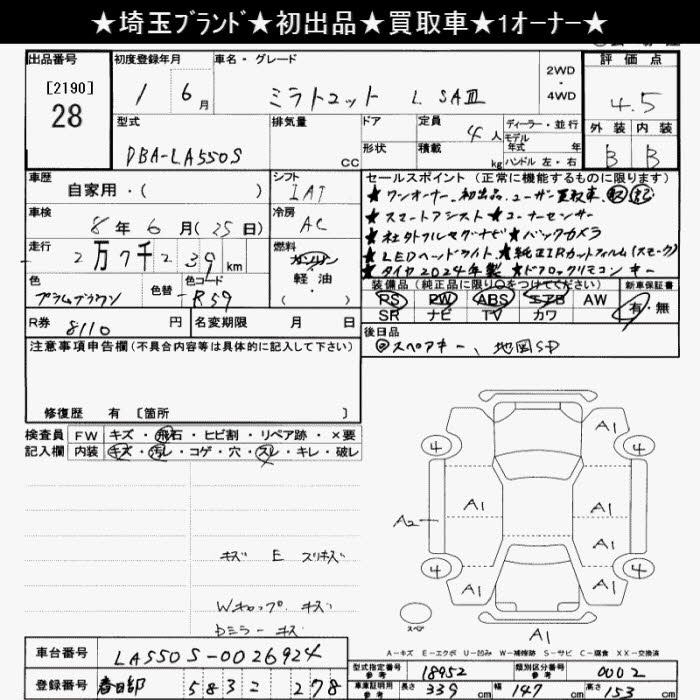 ★埼玉ﾌﾞﾗﾝﾄﾞ★初出品★買取車★1オーナー★
出品番号 初度登録年月 車名・グレード 2WD・4WD 評価点
[2190]
28
1 6月 ミラトコット L SAⅢ 4.5
型式 排気量 cc ドア 定員 4人 ディーラー・並行 外装 内装
DBA-LA550S 形状 積載 kg モデル年式 年 ハンドル 左・右 B B
車歴 自家用・( ) シフト IAT
セールスポイント(正常に機能するものに限ります)
★ワンオーナー、初出品、ユーザー買取車
★スマートアシスト★コーナーセンサー
★社外フルセグナビ★バックカメラ
★LEDヘッドライト★純正IRカットフィルム(スモーク)
★タイヤ2024年製★ドアロックリモコンキー
車検 8年6月(25日) 冷房 AC
走行 2万7千239km 燃料 ガソリン 軽油・
色 プラムブラウン 色替 色コード R59
装備品(純正品に限り○をつけてください) 新車保証書
PS PW ABS エアB AW 有・無
SR ナビ TV カワ
R券 8110円 名変期限 月 日
後日品
◎スペアキー、地図SD
注意事項申告欄(不具合内容等は具体的に記入して下さい)
修復歴 有 [箇所 ]
検査員 FW キズ・飛石・ヒビ割・リペア跡・×要
記入欄 内装 キズ・汚レ・コゲ・穴・スレ・キレ・破レ
キズ E スリキズ
Wキャップ キズ
Dミラー キズ
A1
4 4
A1 A1
A2
4 4
A1 A1
スペア
A1
A-キズ E-エクボ U-凹み W-補修跡 S-サビ C-腐食 XX-交換済
車台番号 LA550S-0026924
型式指定番号 参考 18952 類別区分番号 参考 0002
登録番号 春日部 583 2 278
車庫証明用 参考 長さ 339cm 幅 147cm 高さ 153cm